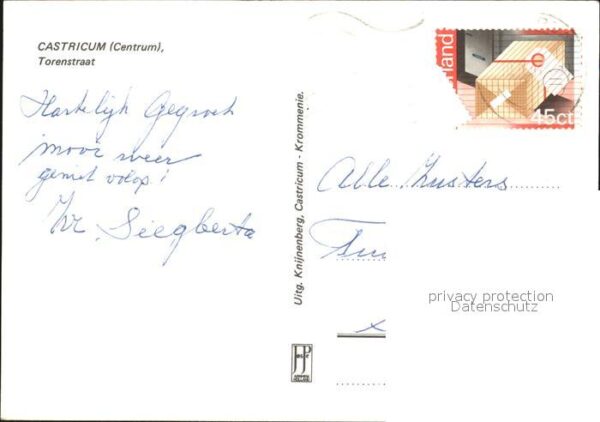 CASTRICUM (Centrum),
Torenstraat
Hartelijk Gegroet
mooi weer
geniet volop!
Zr. Siegberta
Uitg. Knijnenberg, Castricum - Krommenie.
Alle Zusters
erland
45ct
privacy protection
Datenschutz